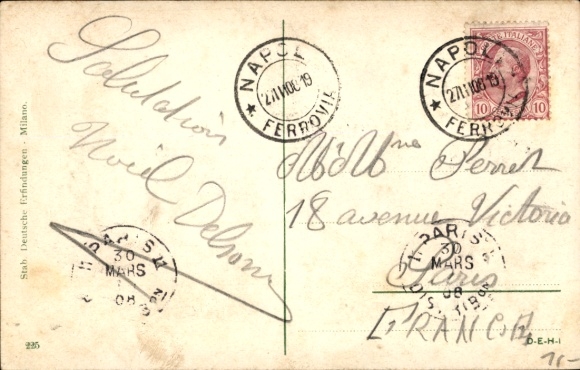 Salutation
Noël Delsour
NAPOLI
27 III 08 19
★ FERROVIA
NAPOLI
27 III 08 19
★ FERROVIA
POSTE ITALIANE
10 10
M Mme Perret
18 avenue Victoria
Paris
FRANCE
PARIS
30
MARS
08
DISTRIBUTION
PARIS
30
MARS
08
DISTRIBUTION
Stab. Deutsche Erfindungen - Milano.
225
D-E-H-I